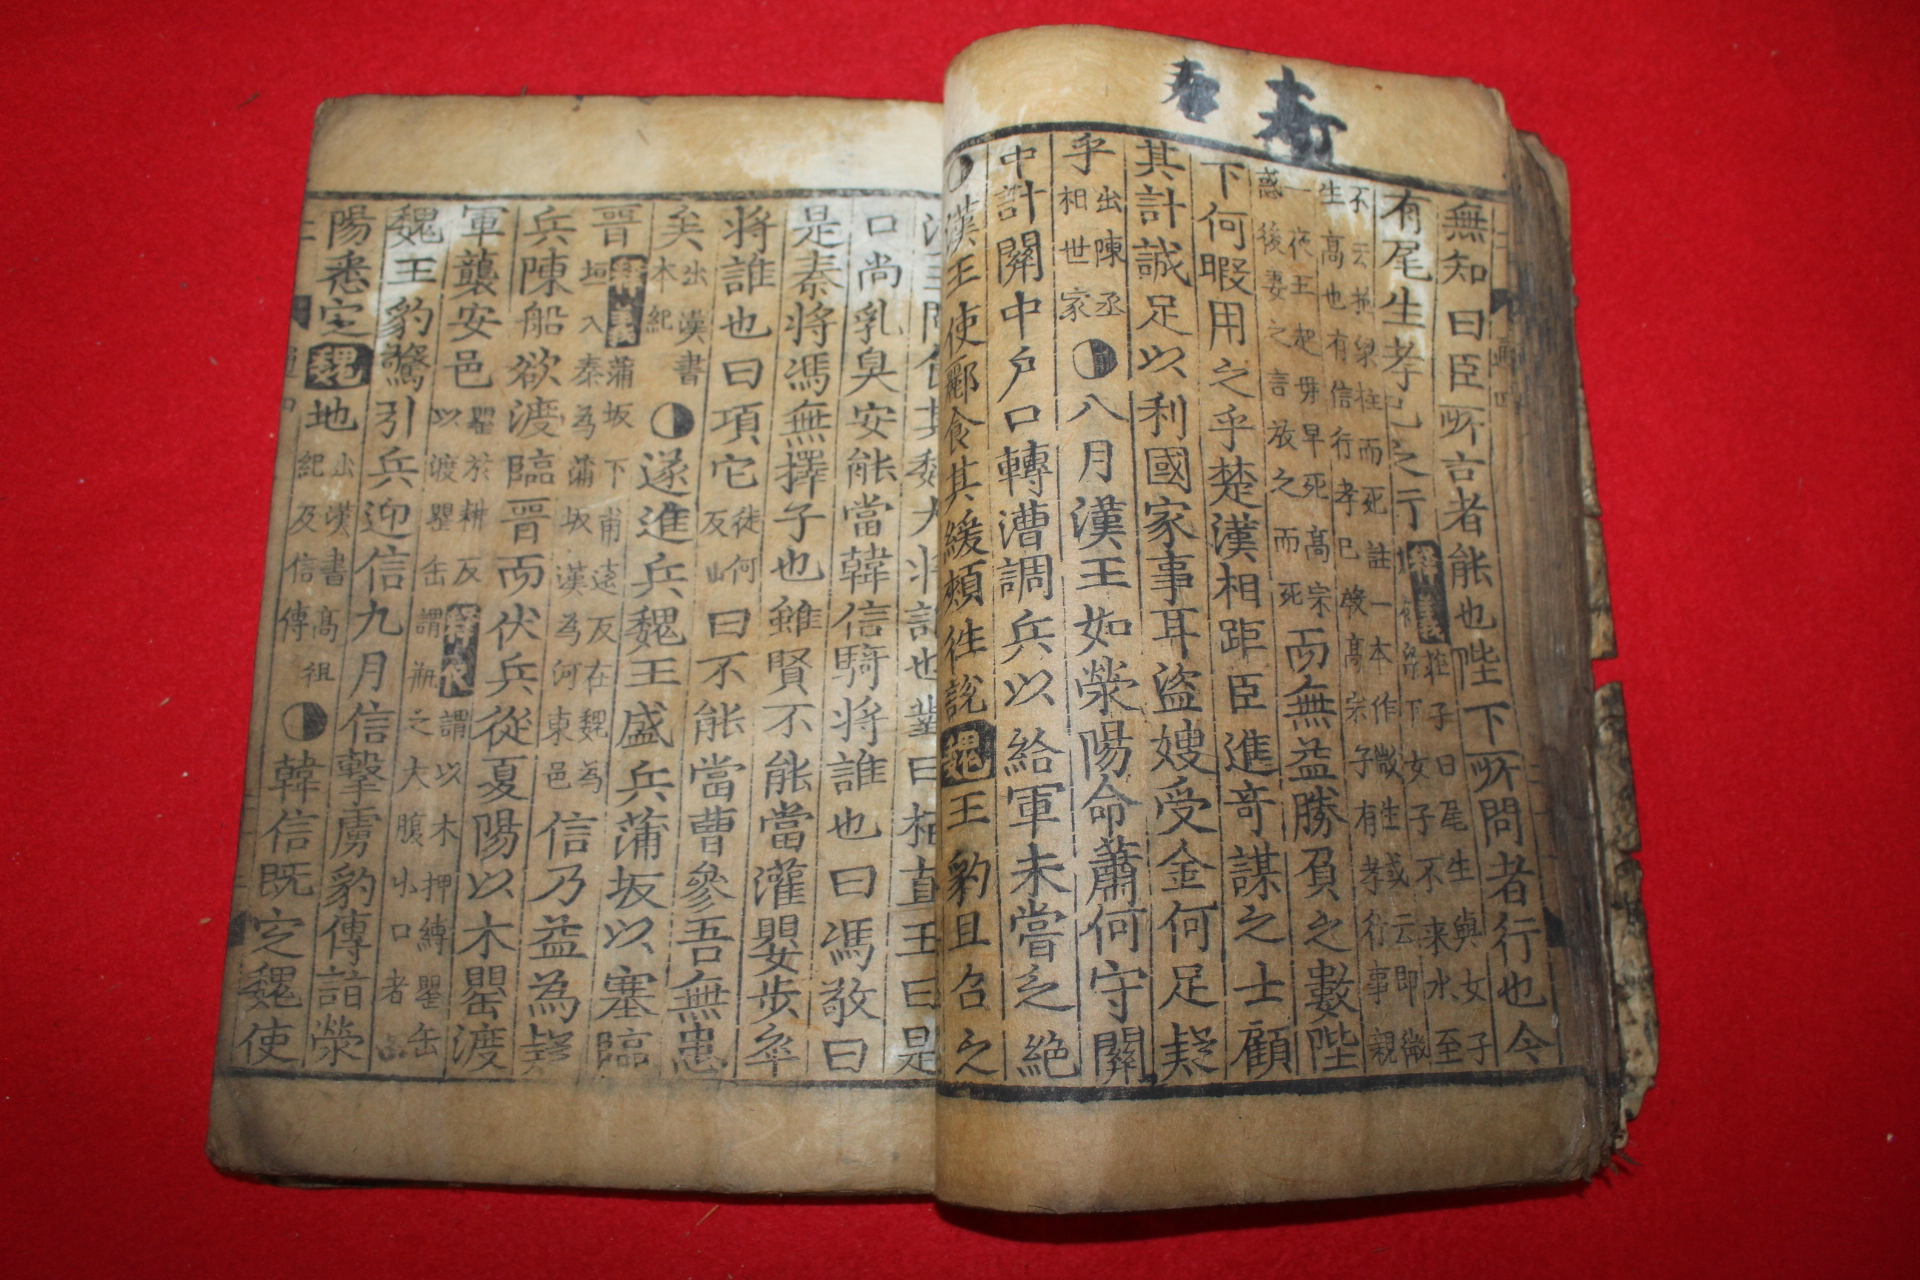 無知曰臣所言者能也陛下所問者行也今
有尾生孝己之行釋義莊子曰尾生與女子下女子不来水至
不去抱梁柱而死註一本作微生或云即微生高也有信行孝已殷高宗子有孝行事親
一夜王起毋早死高宗惑後妻之言放之而死而無益勝負之數陛
下何暇用之乎楚漢相距臣進奇謀之士顧
其計誠足以利國家事耳盜嫂受金何足疑
乎出陳丞相世家◑八月漢王如滎陽命蕭何守關
中計關中戶口轉漕調兵以給軍未嘗乏絶
◑漢王使酈食其緩頰往說魏王豹且召之
漢王問食其魏大將誰也對曰柏直王曰是
口尚乳臭安能當韓信騎將誰也曰馮敬曰
是秦將馮無擇子也雖賢不能當灌嬰步卒
將誰也曰項它徒何反曰不能當曹參吾無患
矣出漢書本紀◑遂進兵魏王盛兵蒲坂以塞臨
晋釋義蒲坂下甫遠反在魏為垣入秦為蒲坂漢為河東邑信乃益為疑
兵陳船欲渡臨晋而伏兵從夏陽以木罌渡
軍襲安邑罌於耕反謂以木押縛罌缶以渡罌缶謂瓶之大腹小口者
魏王豹驚引兵迎信九月信擊虜豹傳詣滎
陽悉定魏地出漢書高祖紀及信傳◑韓信既定魏使